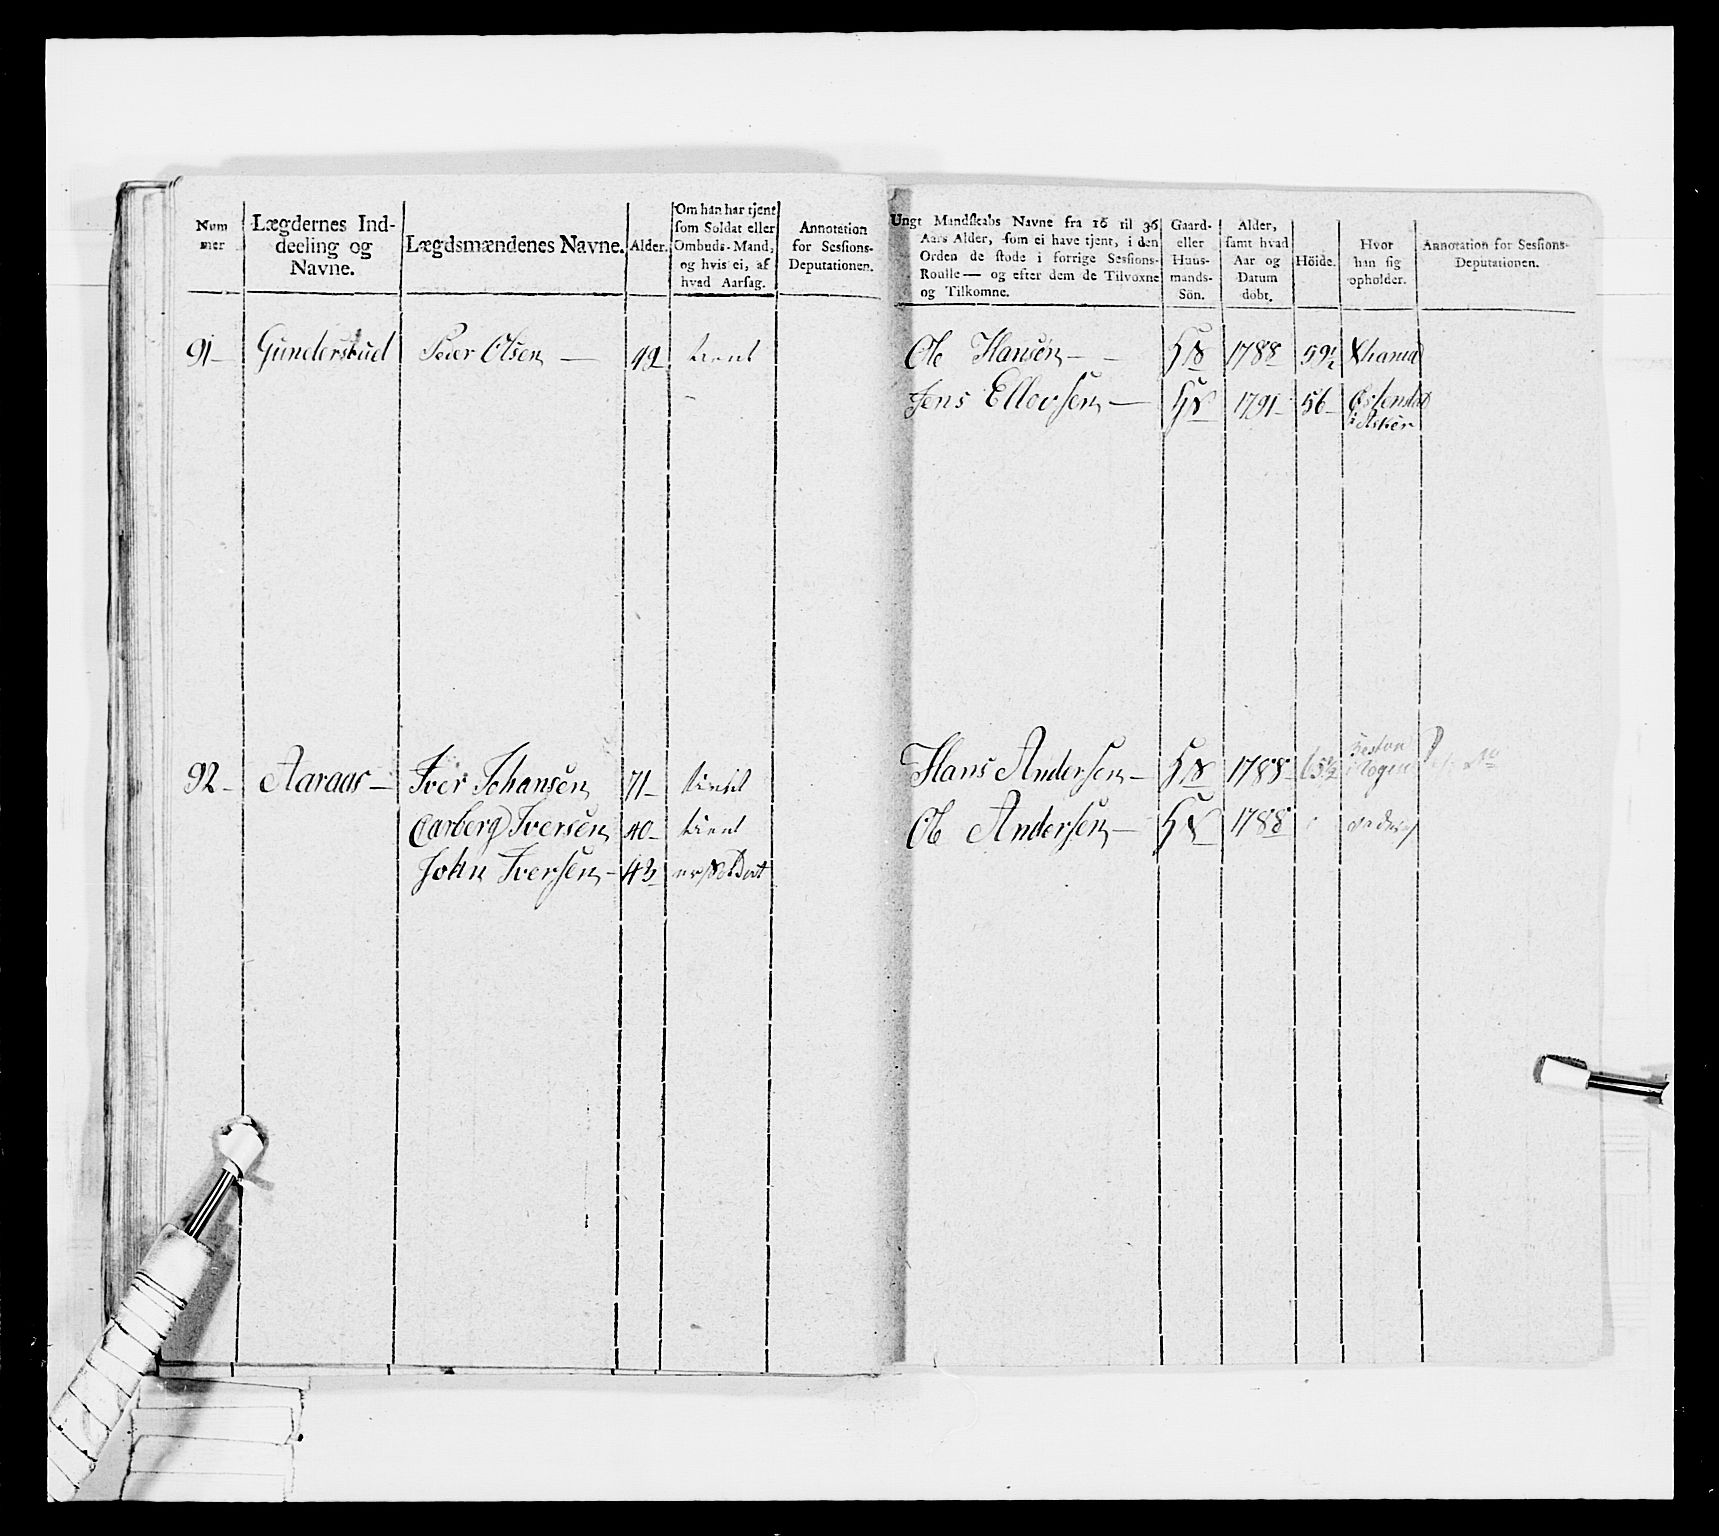 Num mer
Lægdernes Ind-
deeling og
Navne.
Lægdsmændenes Navne.
Alder.
Om han har tjent
som Soldat eller
Ombuds-Mand,
og hvis ei, af
hvad Aarsag.
Annotation
for Sessions-
Deputationen.
Ungt Mandskabs Navne fra 16 til 36
Aars Alder, som ei have tjent, i den
Orden de stode i forrige Sessions-
Roulle — og efter dem de Tilvoxne
og Tilkomne.
Gaard-
eller
Huus-
mands-
Sön.
Alder,
samt hvad
Aar og
Datum
dobt.
Höide.
Hvor
han sig
opholder.
Annotation for Sessions-
Deputationen.
91 – Gunderstuel Peder Olsen — 49 tient Ole Hansen – – 1788 59½
Jens Ellevsen — 1791 – 56 –
i Asker
92 – Aaraas – Iver Johansen 71 – tient Hans Andersen – 1788
Carberg Iversen 40 – tient Ole Andersen – 1788
John Iversen – 43